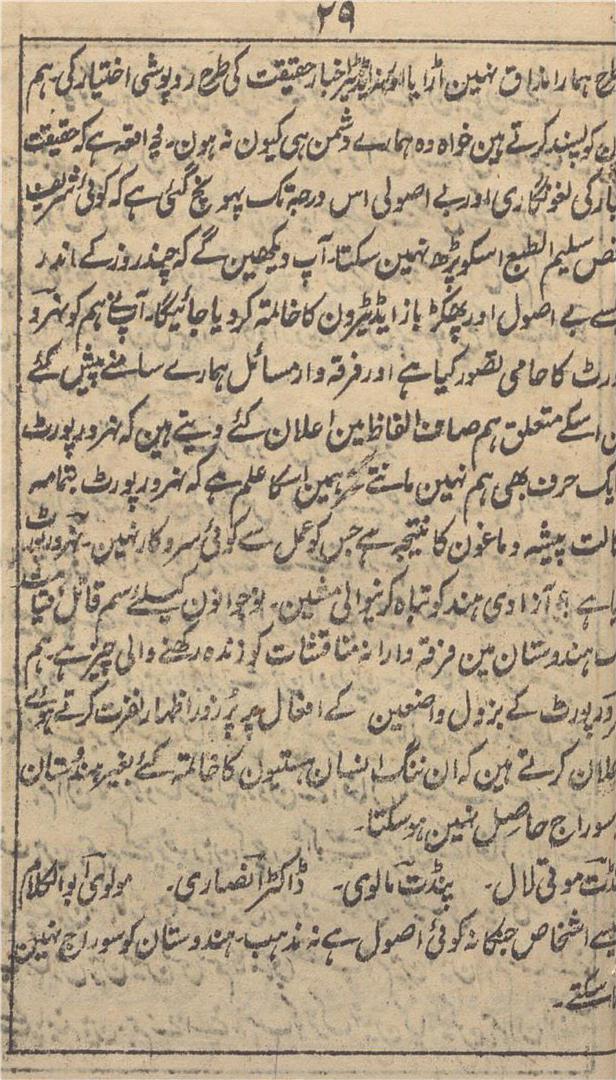 ۲۹
ہمارا مذاق نہین اڑایا اور نہ ایڈیٹر اخبار حقیقت کی طرح روپوشی اختیار کی۔ ہم
کو پسند کرتے ہین خواہ وہ ہمارے دشمن ہی کیون نہ ہون۔ یہ واقعہ ہے کہ حقیقت
کی لغو نگاری اور بے اصولی اس درجہ تک پہونچ گئی ہے کہ کوئی شریف
سلیم الطبع اسکو پڑھ نہین سکتا۔ آپ دیکھین گے کہ چند روز کے اندر
بے اصول اور پھکڑ باز ایڈیٹرون کا خاتمہ کر دیا جائیگا۔ آپ نے ہم کو نہرو
کا حامی تصور کیا ہے اور فرقہ وار مسائل ہمارے سامنے پیش کئے
اسکے متعلق ہم صاف الفاظ مین اعلان کئے دیتے ہین کہ نہرو رپورٹ
حرف بھی ہم نہین مانتے ہمین اسکا علم ہے کہ نہرو رپورٹ بتمامہ
پیشہ دماغون کا نتیجہ ہے جس کو عمل سے کوئی سروکار نہین۔ نہرو رپورٹ
ہے آزادی ہند کو تباہ کرنیوالی مشین۔ نوجوانون کیلئے سم قاتل
ہندوستان مین فرقہ وارانہ مناقشات کو زندہ رکھنے والی چیز ہے۔ ہم
رپورٹ کے بزدل واضعین کے افعال پر پُر زور اظہار نفرت کرتے ہوئے
کرتے ہین کہ ان ننگ انسان ہستیون کا خاتمہ کئے بغیر ہندوستان
سوراج حاصل نہین ہو سکتا۔
موتی لال۔ پنڈت مالوی۔ ڈاکٹر انصاری۔ مولوی ابوالکلام
اشخاص جنکا نہ کوئی اصول ہے نہ مذہب۔ ہندوستان کو سوراج نہین
سکتے۔